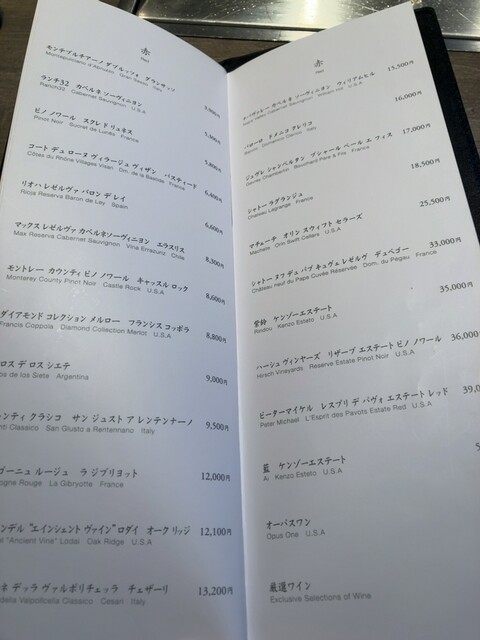 赤
Red
モンテプルチアーノ ダブルッツォ グランサッソ
Montepulciano d'Abruzzo Gran Sasso
ランチ32 カベルネ ソーヴィニヨン
Ranch32 Cabernet Sauvignon U.S.A
ピノ ノワール スクレ ド リュネス
Pinot Noir Sucret de Lunès France
5,800円
コート デュ ローヌ ヴィラージュ ヴィザン バスティード
Côtes du Rhône Villages Visan Dm. de la Bastide France
6,400円
リオハ レゼルヴァ バロン デ レイ
Rioja Reserva Baron de Ley Spain
6,600円
マックス レゼルヴァ カベルネソーヴィニヨン エラスリス
Max Reserva Cabernet Sauvignon Vina Errazuriz Chile
8,300円
モントレー カウンティ ピノ ノワール キャッスル ロック
Monterey County Pinot Noir Castle Rock U.S.A
8,600円
ダイアモンド コレクション メルロー フランシス コッポラ
Francis Coppola Diamond Collection Merlot U.S.A
8,800円
ロス デ ロス シエテ
os de los Siete Argentina
9,000円
ンティ クラシコ サン ジュスト ア レンテンナーノ
nti Classico San Giusto a Rentennano Italy
9,500円
ゴーニュ ルージュ ラ ジブリヨット
ogne Rouge La Gibryotte France
12,000円
ンデル "エインシェント ヴァイン" ロダイ オーク リッジ
el "Ancient Vine" Lodai Oak Ridge U.S.A
12,100円
ネ デッラ ヴァルポリチェッラ チェザーリ
della Valpolicella Classico Cesari Italy
13,200円
赤
Red
ナパ・ヴァレー カベルネ ソーヴィニヨン ウィリアムヒル
Napa Valley Cabernet Sauvignon William Hill U.S.A
15,500円
バローロ ドメニコ クレリコ
Barolo Domenico Clerico Italy
16,000円
ジュヴレ シャンベルタン ブシャール ペール エ フィス
Gevrey Chambertin Bouchard Père & Fils France
17,000円
シャトー ラグランジュ
Château Lagrange France
18,500円
マチェーテ オリン スウィフト セラーズ
Machete Orin Swift Cellars U.S.A
25,500円
シャトー ヌフ デュ パプ キュヴェ レゼルヴ デュペゴー
Château neuf du Pape Cuvée Réservée Dom. du Pégau France
33,000円
紫鈴 ケンゾーエステート
Rindo Kenzo Estate U.S.A
35,000円
ハーシュ ヴィンヤーズ リザーブ エステート ピノ ノワール
Hirsch Vineyards Reserve Estate Pinot Noir U.S.A
36,000
ピーターマイケル レスプリ デ パヴォ エステート レッド
Peter Michael L'Esprit des Pavots Estate Red U.S.A
39,0
藍 ケンゾーエステート
Ai Kenzo Estate U.S.A
オーパスワン
Opus One U.S.A
厳選ワイン
Exclusive Selections of Wine